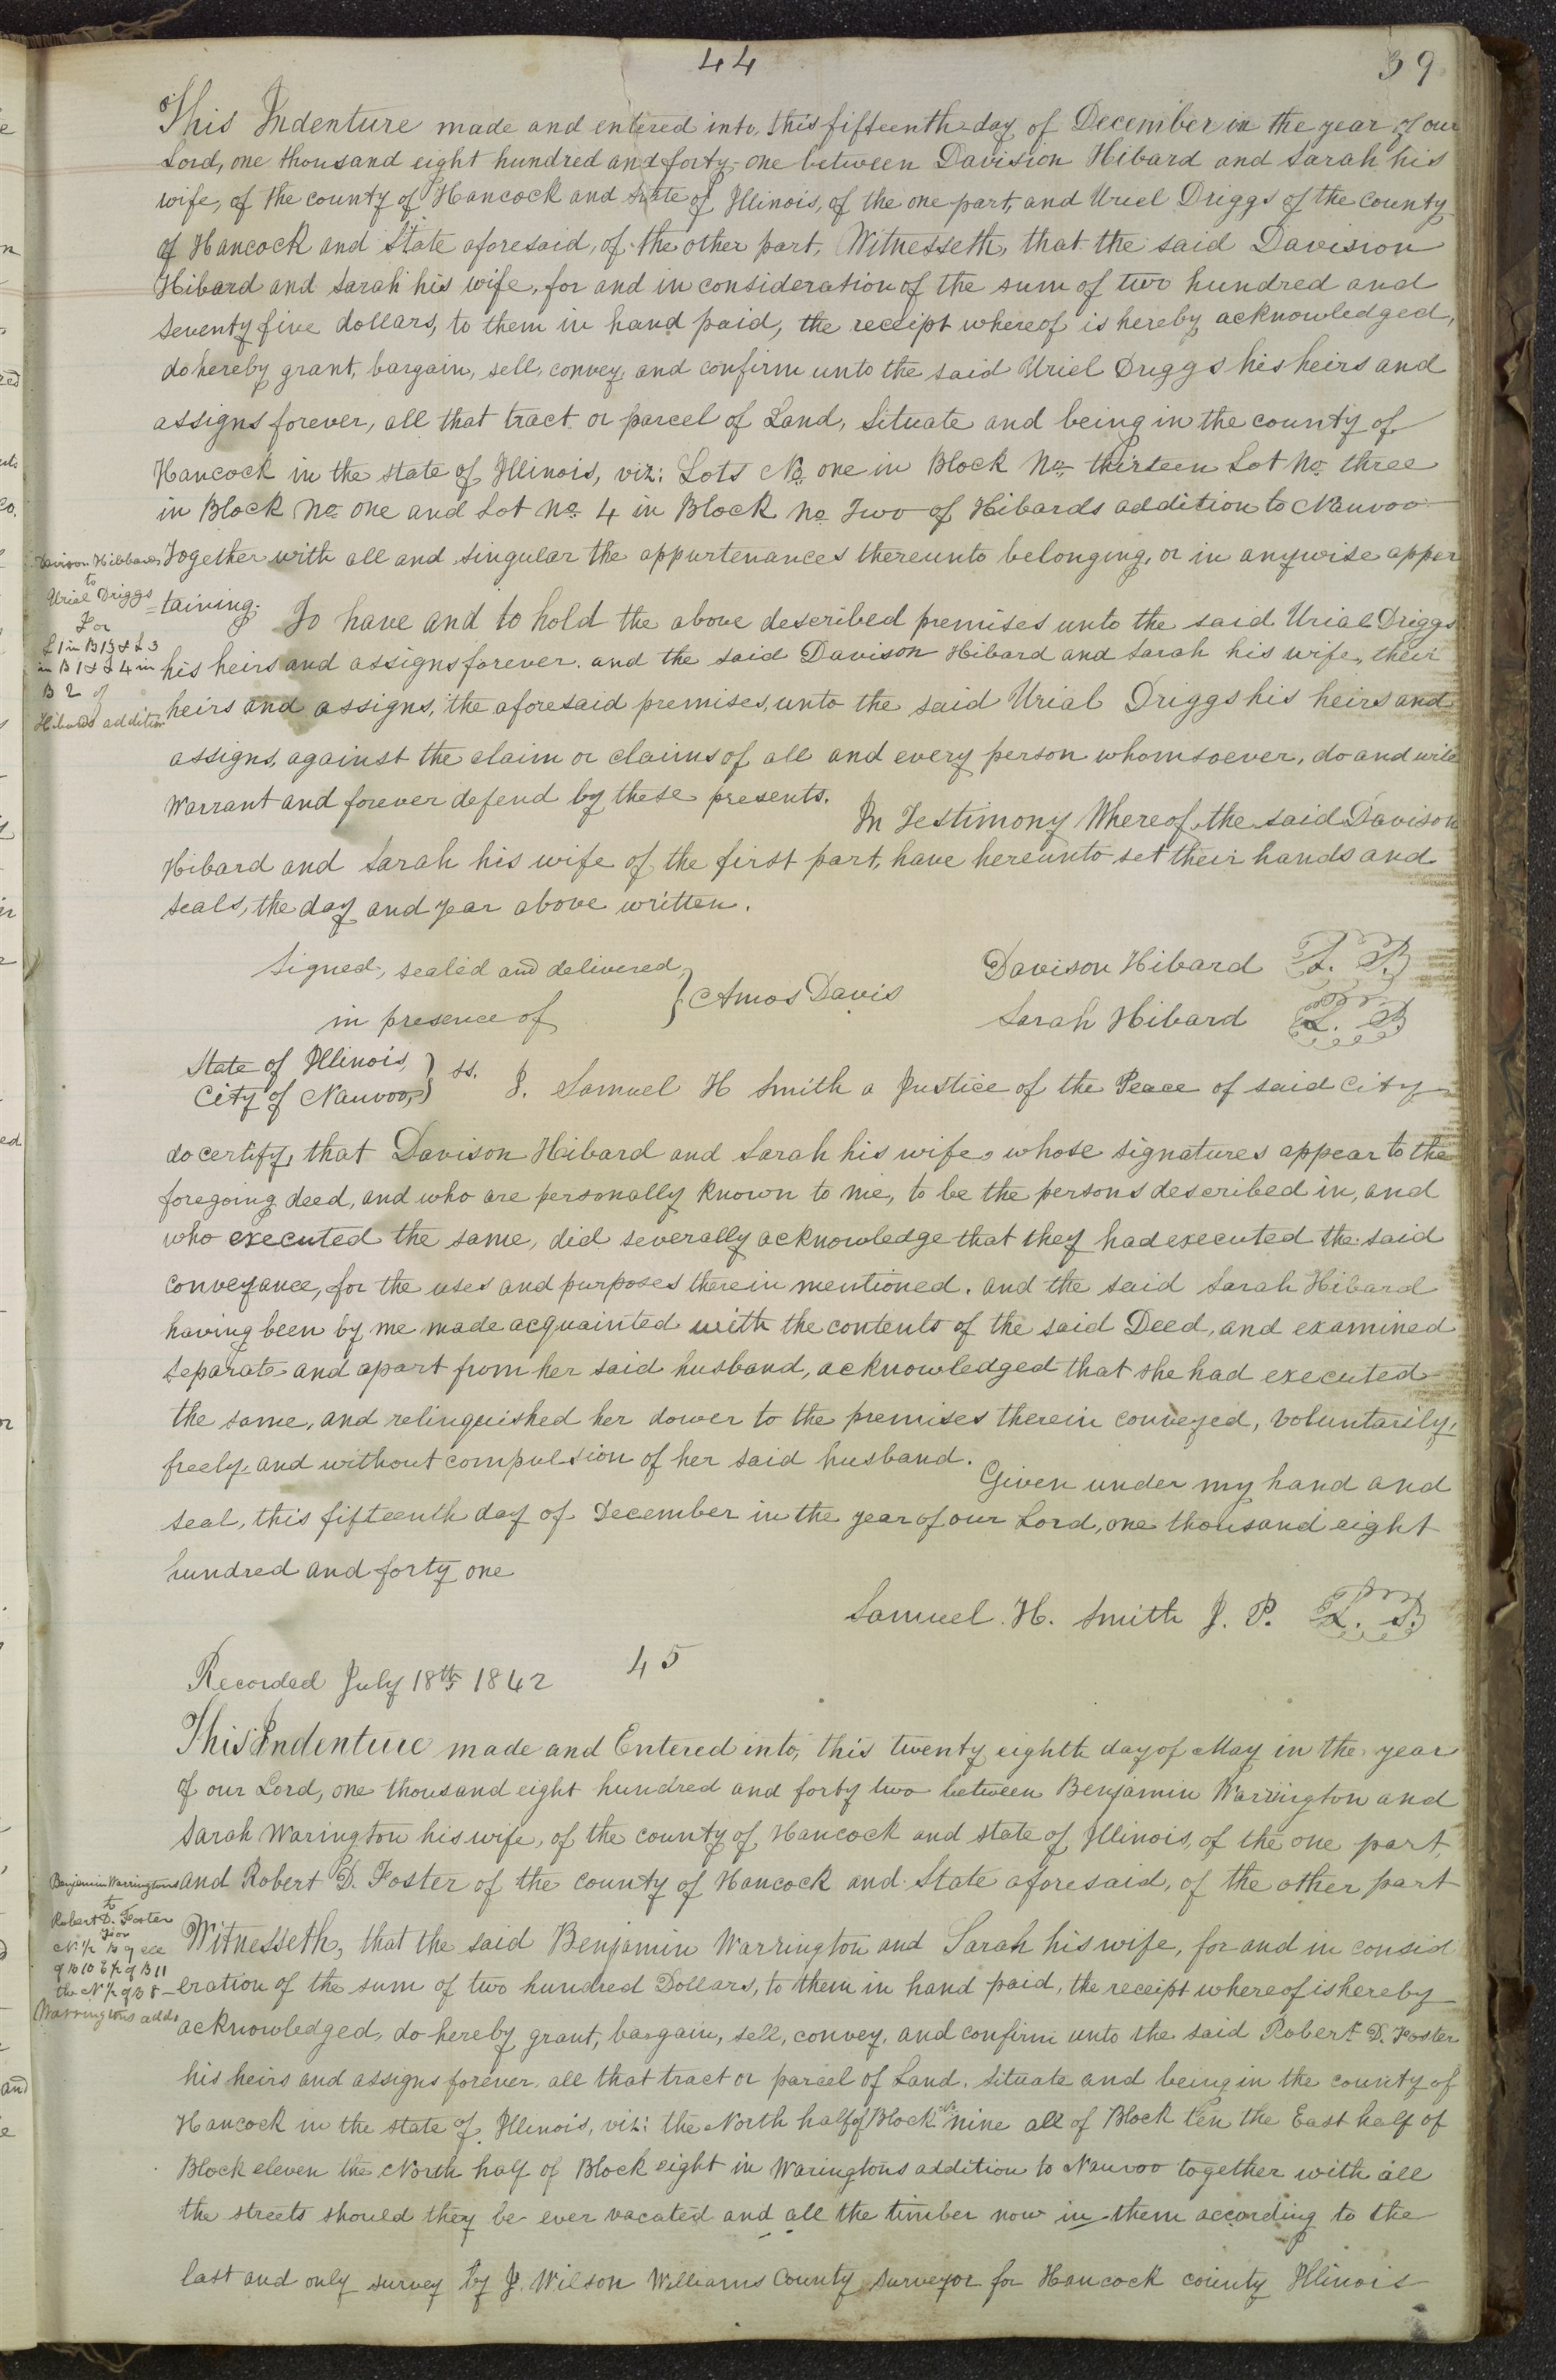 44
39
This Indenture made and entered into, this fifteenth day of December in the year of our
Lord, one thousand eight hundred and forty-one between Davision Hibard and Sarah his
wife, of the county of Hancock and State of Illinois, of the one part, and Uriel Driggs of the county
of Hancock and State aforesaid, of the other part, Witnesseth, that the said Davision
Hibard and Sarah his wife, for and in consideration of the sum of two hundred and
seventy five dollars, to them in hand paid, the receipt whereof is hereby acknowledged,
do hereby grant, bargain, sell, convey, and confirm unto the said Uriel Driggs his heirs and
assigns forever, all that tract or parcel of Land, Situate and being in the county of
Hancock in the state of Illinois, viz: Lots No one in Block No thirteen Lot No three
in Block No one and Lot No 4 in Block No Two of Hibards addition to Nauvoo
Together with all and singular the appurtenances thereunto belonging, or in anywise apper
=taining. To have and to hold the above described premises unto the said Urial Driggs
his heirs and assigns forever. and the said Davison Hibard and Sarah his wife, their
heirs and assigns, the aforesaid premises, unto the said Urial Driggs his heirs and
assigns, against the claim or claims of all and every person whomsoever, do and will
Warrant and forever defend by these presents. In Testimony Whereof, the said Davison
Hibard and Sarah his wife of the first part, have hereunto set their hands and
seals, the day and year above written.
Davison Hibbards
to
Urial Driggs
For
L 1 in B 13 & L 3
in B 1 & L 4 in
B 2 of
Hibards addition
Signed, sealed and delivered,
in presence of } Amos Davis
Davison Hibard L. S.
Sarah Hibard L. S.
State of Illinois,
City of Nauvoo, } ss. I. Samuel H Smith a Justice of the Peace of said City
do certify, that Davison Hibard and Sarah his wife, whose signatures appear to the
foregoing deed, and who are personally known to me, to be the persons described in, and
who executed the same, did severally acknowledge that they had executed the said
conveyance, for the uses and purposes therein mentioned. and the said Sarah Hibard
having been by me made acquainted with the contents of the said Deed, and examined
separate and apart from her said husband, acknowledged that she had executed
the same, and relinquished her dower to the premises therein conveyed, voluntarily,
freely, and without compulsion of her said husband. Given under my hand and
seal, this fifteenth day of December in the year of our Lord, one thousand eight
hundred and forty one
Samuel. H. Smith J. P. L. S.
Recorded July 18th 1842
45
This Indenture made and Entered into, this twenty eighth day of May in the year
of our Lord, one thousand eight hundred and forty two between Benjamin Warrington and
Sarah Warington his wife, of the county of Hancock and state of Illinois, of the one part,
and Robert D. Foster of the county of Hancock and State aforesaid, of the other part
Witnesseth, that the said Benjamin Warrington and Sarah his wife, for and in consid
-eration of the sum of two hundred Dollars, to them in hand paid, the receipt whereof is hereby
acknowledged, do hereby grant, bargain, sell, convey, and confirm unto the said Robert D. Foster
his heirs and assigns forever, all that tract or parcel of Land, Situate and being in the county of
Hancock in the state of Illinois, viz: the North half of Block nine all of Block Ten the East half of
Block eleven the North half of Block eight in Waringtons addition to Nauvoo together with all
the streets should they be ever vacated and all the timber now in them according to the
last and only survey by J. Wilson Williams County Surveyor for Hancock county Illinois
Benjamin Warringtons
to
Robert D. Foster
For
N 1/2 B 9 all
of B 10 E 1/2 of B 11
the N 1/2 of B 8
Warringtons addn